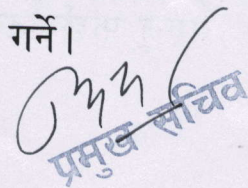 गर्ने।
प्रमुख सचिव